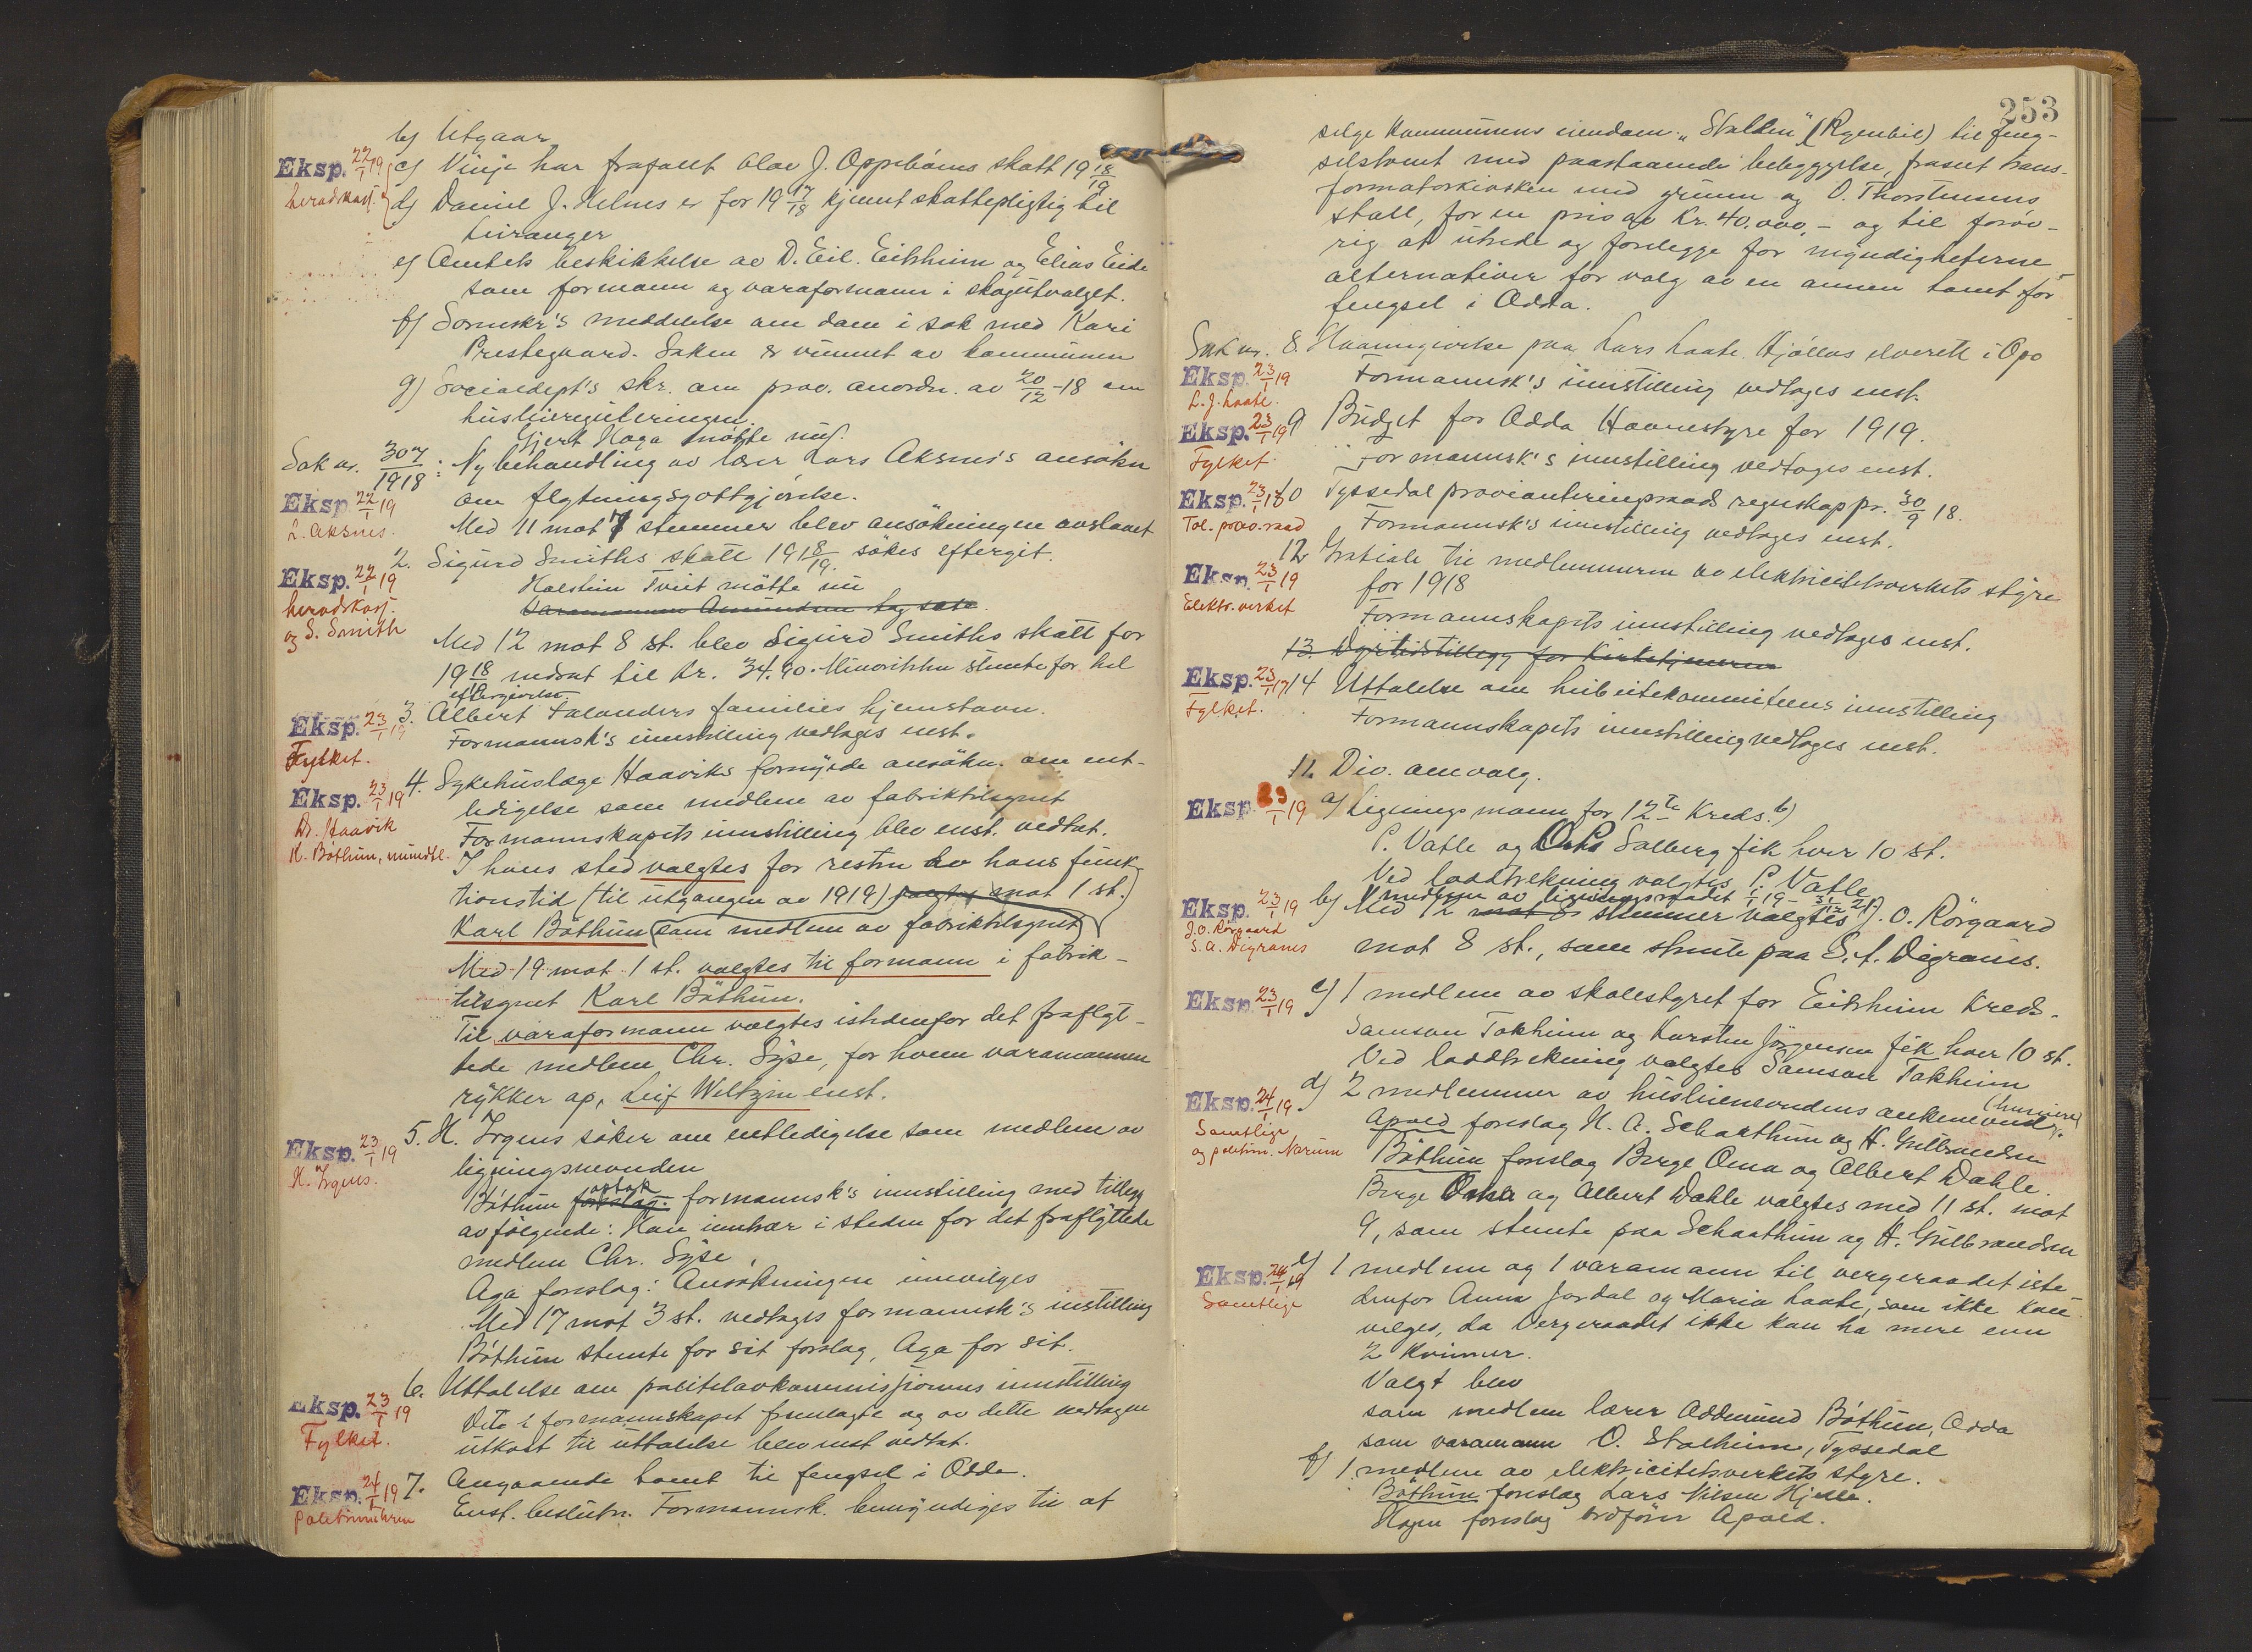 b) Utgaar
Eksp. 22/1 19 c) Vinje har frafallt Olav J. Oppebóens skatt 19 18/19
herredskass. d) Daniel J. Helnes er for 19 17/18 kjennt skattepligtig til
Leiranger
e) Amtets beskikkelse av D. Eil. Eitrheim og Elias Eide
som formann og varaformann i skogutvalget.
f) Sorenskr's meddelelse om dom i sak med Kari
Prestegaard. Saken er vunnet av kommunen
g) Socialdept's skr. om prov. anordn. av 20/12-18 om
husleiereguleringen.
Gjert Haga mötte nu.
Sak nr. 307/1918: Ny behandling av lærer Lars Aksnes's ansökn
Eksp 22/1 19 om flytningsgottgjörelse.
L. Aksnes. Med 11 mot 7 stemmer blev ansökningen avslaaet
2. Sigurd Smiths skatt 1918/19. sökes eftergit.
Eksp. 22/1 19 Halstein Tveit mötte nu
herredskass. Varamann Amundsen tog sæte.
og S. Smith Med 12 mot 8 st. blev Sigurd Smiths skatt for
19 18/19 nedsat til kr. 34.90. Minoriteten stemte for hel
eftergivelse.
3. Albert Falanders families hjemstavn.
Eksp. 23/1 19 Formannsk's innstilling vedtages enst.
Fylket.
4. Sykehuslæge Haaviks fornyede ansökn. om ent-
Eksp. 23/1 19 ledigelse som medlem av fabriktilsynet
Dr. Haavik Formannskapets innstilling blev enst. vedtat.
K. Böthun, mundtl. I hans sted valgtes for resten av hans funk-
tionstid (til utgangen av 1919) valgtes mot 1 st.
Karl Böthun som medlem av fabriktilsynet
Med 19 mot 1 st. valgtes til formann i fabrik-
tilsynet Karl Böthun.
Til varaformann valgtes istedenfor det fraflyt-
tede medlem Chr. Syse, for hvem varamannen
rykker op, Leif Weltzin enst.
5. H. Irgens söker om entledigelse som medlem av
Eksp. 23/1 19 ligningsnevnden
H. Irgens. Böthun optok forslag formannsk's innstilling med tillegg
av fölgende: Han inntrær i steden for det fraflyttede
medlem Chr. Syse.
Aga forslag: Ansökningen innvilges
Med 17 mot 3 st. vedtages formannsk's instilling
Böthun stemte for sit forslag, Aga for sit.
6. Uttalelse om politilovkommissjonens innstilling
Eksp. 23/1 19 Det i formannskapet fremlagte og av dette vedtagne
Fylket. utkast til uttalelse blev enst vedtat.
Eksp. 24/1 19 7. Angaaende tomt til fengsel i Odda.
Politimesteren Enst. beslutn. Formannsk. bemyndiges til at
253
selge kommunens eiendom "Stallen" (Ryenbil) til feng-
selstomt med paastaaende bebyggelse, fraset trans-
formatorkiosken med grunn og O. Thorstensens
stall, for en pris av Kr. 40.000,- og til forøv-
rig at utrede og forelegge for myndigheterne
alternativer for valg av en annen tomt for
fengsel i Odda.
Sak nr. 8. Haanngivelse paa Lars Laate. Hjöllos elverett i Opo
Eksp. 23/1 19 Formannsk's innstilling vedtages enst.
L. J. Laate.
Eksp. 23/1 19 9 Budget for Odda Havnestyre for 1919.
Fylket. Formannsk's innstilling vedtages enst.
Eksp. 23/1 18 10 Tyssedal provianteringsraads regnskap pr. 30/9 18.
Tys. prov.raad Formannsk's innstilling vedtages enst.
12 Gratiale til medlemmerne av elektricitetsverkets styre
Eksp. 23/1 19 for 1918
Elektr.verket Formannskapets innstilling vedtages enst.
13. Dyrtidstillegg for kirketjeneren
Eksp. 23/1 17 14 Uttalelse om komiteens innstilling
Fylket. Formannskapets innstilling vedtages enst.
11. Div. omvalg.
Eksp 23/1 19 a) Ligningsmann for 12te Kreds. b)
P. Vatle og O. Solberg fik hver 10 st.
Ved loddtrekning valgtes P. Vatle
medlem av ligningsraadet 1/1 19 - 31/12 21
Eksp. 23/1 19 b) Med 12 mot 8 stemmer valgtes J. O. Rörgaard
J.O. Rörgaard mot 8 st., som stemte paa S. A. Digranes.
S. A. Digranes
Eksp. 23/1 19 c) 1 medlem av skolestyret for Eitrheim Kreds.
Samson Tokheim og Karsten Jörgensen fik hver 10 st.
Ved loddtrekning valgtes Samson Tokheim
Eksp. 24/1 19 d) 2 medlemmer av husleienevndens ankenevnd.
Samtlige Apold forslag H. A. Schaathun og H. Gulbrandsen
og politim. Nærum Böthun forslag Berge Oma og Albert Dahle.
Berge Oma og Albert Dahle valgtes med 11 st. mot
9, som stemte paa Schaathun og H. Gulbrandsen
Eksp. 24/1 19 e) 1 medlem og 1 varamann til vergeraadet iste-
Samtlige denfor Anna Jordal og Maria Laate, som ikke kan
velges, da Vergeraadet ikke kan ha mere enn
2 kvinner.
Valgt blev
som medlem lærer Oddmund Böthun, Odda
som varamann O. Stalheim, Tyssedal
f) 1 medlem av elektricitetsverkets styre.
Böthun forslag Lars Nilsen Hjelle.
Hagen forslag ordförer Apold.